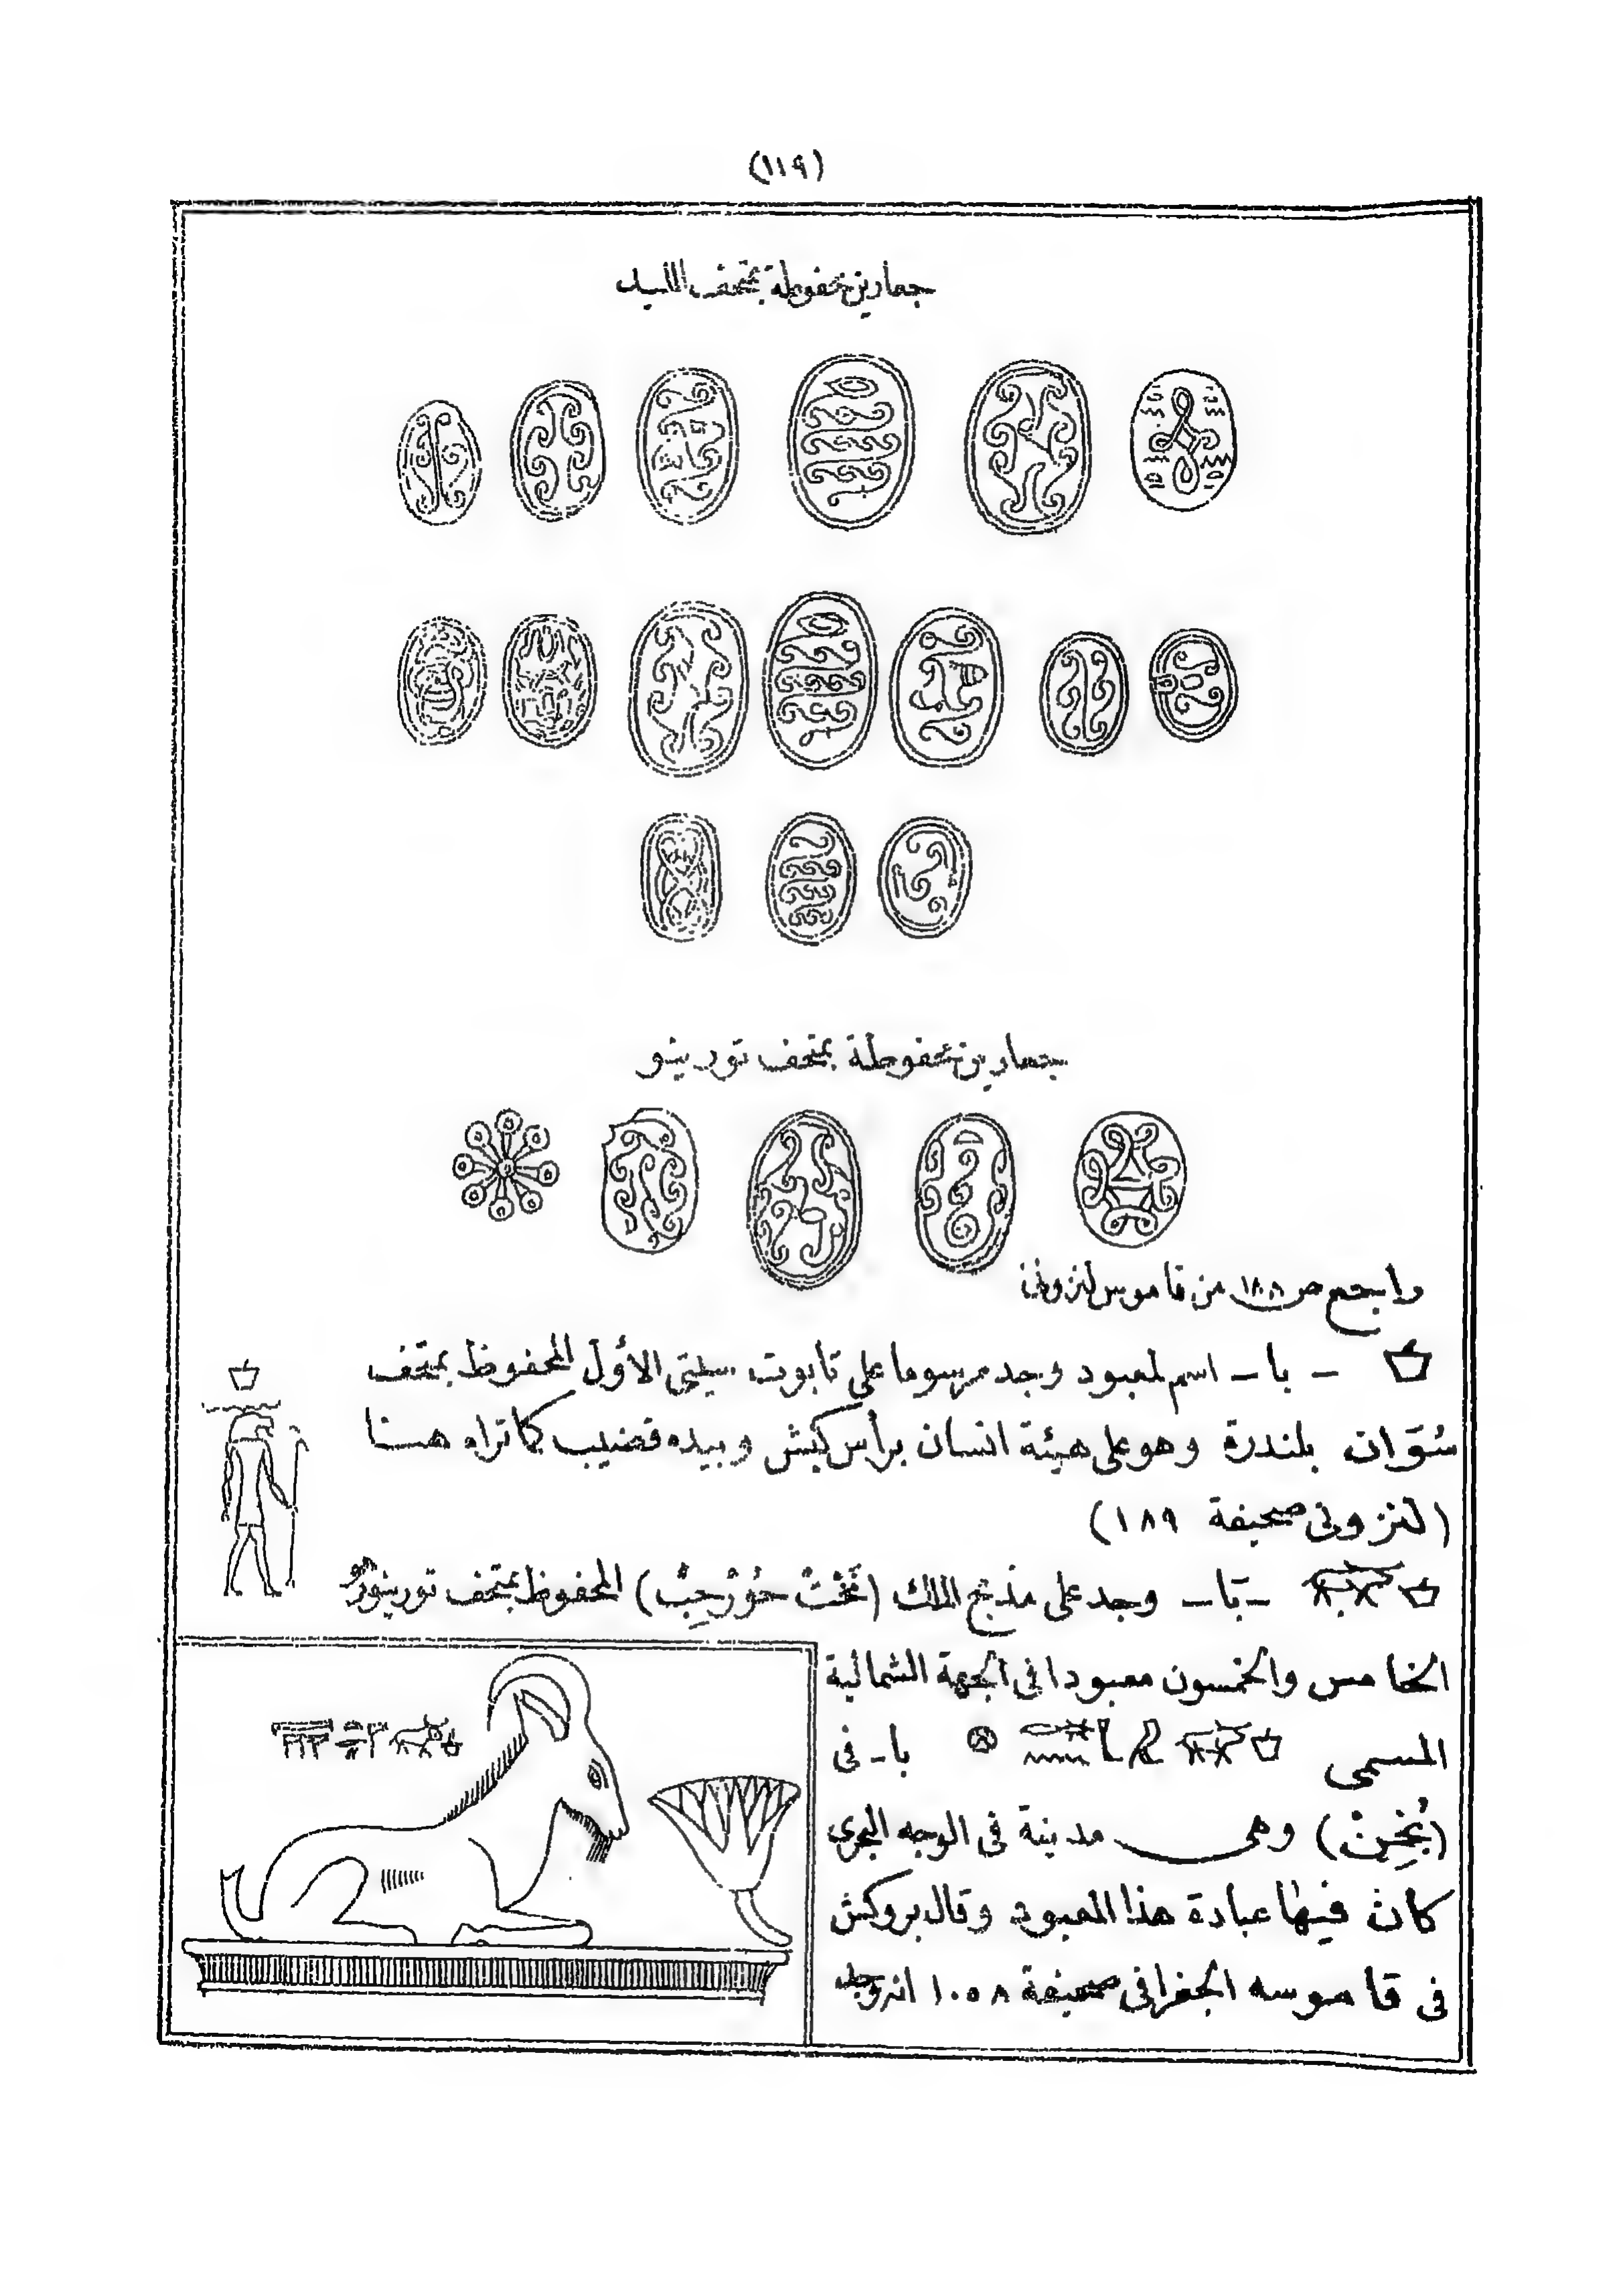 (١١٩)
جعارين محفوظة بمتحف
جعارين محفوظة بمتحف تورينو
راجع ص ١٨٨ من قاموس لنزونى
ـ با ـ اسم لمعبود وجد مرسوما على تابوت سيتى الاوّل المحفوظ بمتحف
سُوَان بلندرة وهو على هيئة انسان برأس كبش وبيده قضيب كما تراه هنا
(لنزونى صحيفة ١٨٩)
ـ با ـ وجد على مذبح الملك (نَخْتْ حُورْحِبْ) المحفوظ بمتحف تورينو
الخامس والخمسون معبودا فى الجهة الشمالية
المسمى با ـ فى
(بُخِنْ) وهى مدينة فى الوجه البحرى
كان فيها عبادة هذا المعبود وقال بروكش
فى قاموسه الجغرافى صحيفة ١٠٥٨ انه وجد